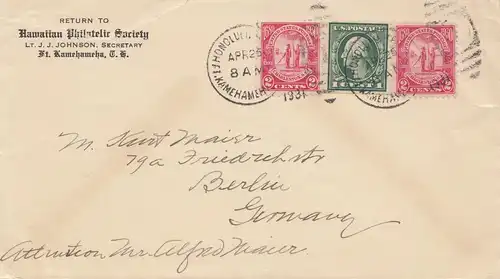 RETURN TO
Hawaiian Philatelic Society
LT. J. J. JOHNSON, SECRETARY
Ft. Kamehameha, T. H.
HONOLULU
APR 25
8 AM
1931
FT. KAMEHAMEHA
2 CENTS 2
U.S. POSTAGE
1 CENT 1
2 CENTS 2
KAMEHAMEHA
Mr. Kurt Maier
79a Friedrichstr
Berlin
Germany
Attention Mr. Alfred Maier